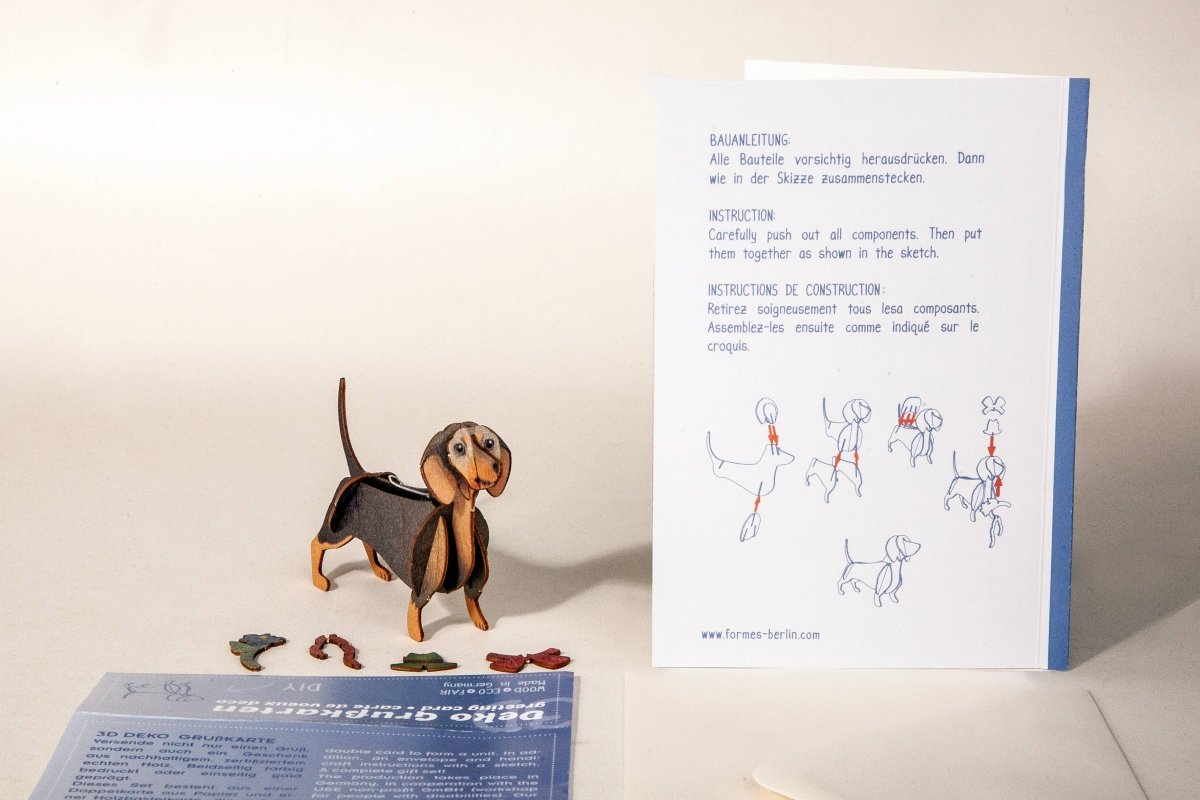 BAUANLEITUNG:
Alle Bauteile vorsichtig herausdrücken. Dann
wie in der Skizze zusammenstecken.
INSTRUCTION:
Carefully push out all components. Then put
them together as shown in the sketch.
INSTRUCTIONS DE CONSTRUCTION:
Retirez soigneusement tous lesa composants.
Assemblez-les ensuite comme indiqué sur le
croquis.
www.formes-berlin.com
DIY
WOOD ECO FAIR
Made in Germany
Deko Grußkarten
greeting card • carte de voeaux deco
3D DEKO GRUßKARTE
Versende nicht nur einen Gruß,
sondern auch ein Geschenk
aus nachhaltigem, zertifiziertem
echten Holz. Beidseitig farbig
bedruckt oder einseitig gold
geprägt.
Dieses Set besteht aus einer
Doppelkarte aus Papier und ei-
ner Holzpostkarte
double card to form a unit. In ad-
dition, an envelope and handi-
craft instructions with a sketch.
A complete gift set!
The production takes place in
Germany, in cooperation with the
USE non-profit GmbH (workshop
for people with disabilities). Our